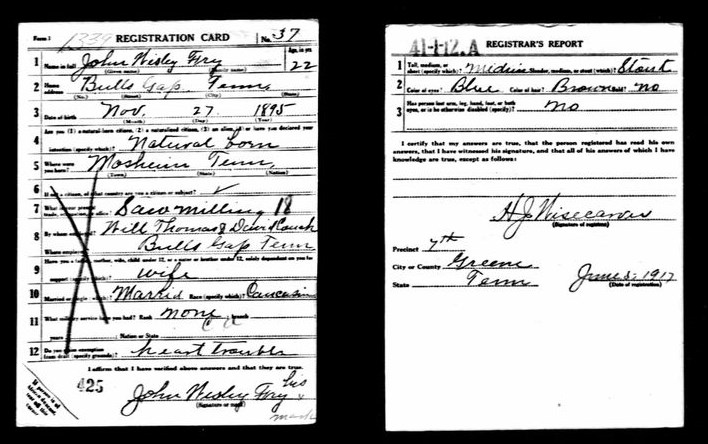 Form 1
1339
REGISTRATION CARD
No. 37
1 Name in full John Wisley Fry
(Given name) (Family name)
Age, in yrs
22
2 Home address Bulls Gap Tenn.
(No.) (Street) (City) (State)
3 Date of birth Nov. 27 1895
(Month) (Day) (Year)
Are you (1) a natural-born citizen, (2) a naturalized citizen, (3) an alien, (4) or have you declared your
4 intention (specify which)? Natural born
5 Where were you born? Mosheim Tenn.
(Town) (State) (Nation)
6 If not a citizen, of what country are you a citizen or subject?
7 What is your present trade, occupation, or office? Saw milling 18
8 By whom employed? Will Thomas & David
Where employed? Bulls Gap Tenn
Have you a father, mother, wife, child under 12, or a sister or brother under 12, solely dependent on you for
9 support (specify which)? wife
10 Married or single (which)? Marrid Race (specify which)? Caucasin
11 What military service have you had? Rank none branch
years Nation or State
12 Do you claim exemption from draft (specify grounds)? heart trouble
I affirm that I have verified above answers and that they are true.
425
John Wesley Fry his x
(Signature or mark) mark
41-1-12. A REGISTRAR'S REPORT
1 Tall, medium, or short (specify which)? Medium Slender, medium, or stout (which)? Stout
2 Color of eyes? Blue Color of hair? Brown Bald? no
3 Has person lost arm, leg, hand, foot, or both eyes, or is he otherwise disabled (specify)? no
I certify that my answers are true, that the person registered has read his own
answers, that I have witnessed his signature, and that all of his answers of which I have
knowledge are true, except as follows:
H J Wisecarver
(Signature of registrar)
Precinct 7th
City or County Greene
State Tenn
June 5, 1917
(Date of registration)